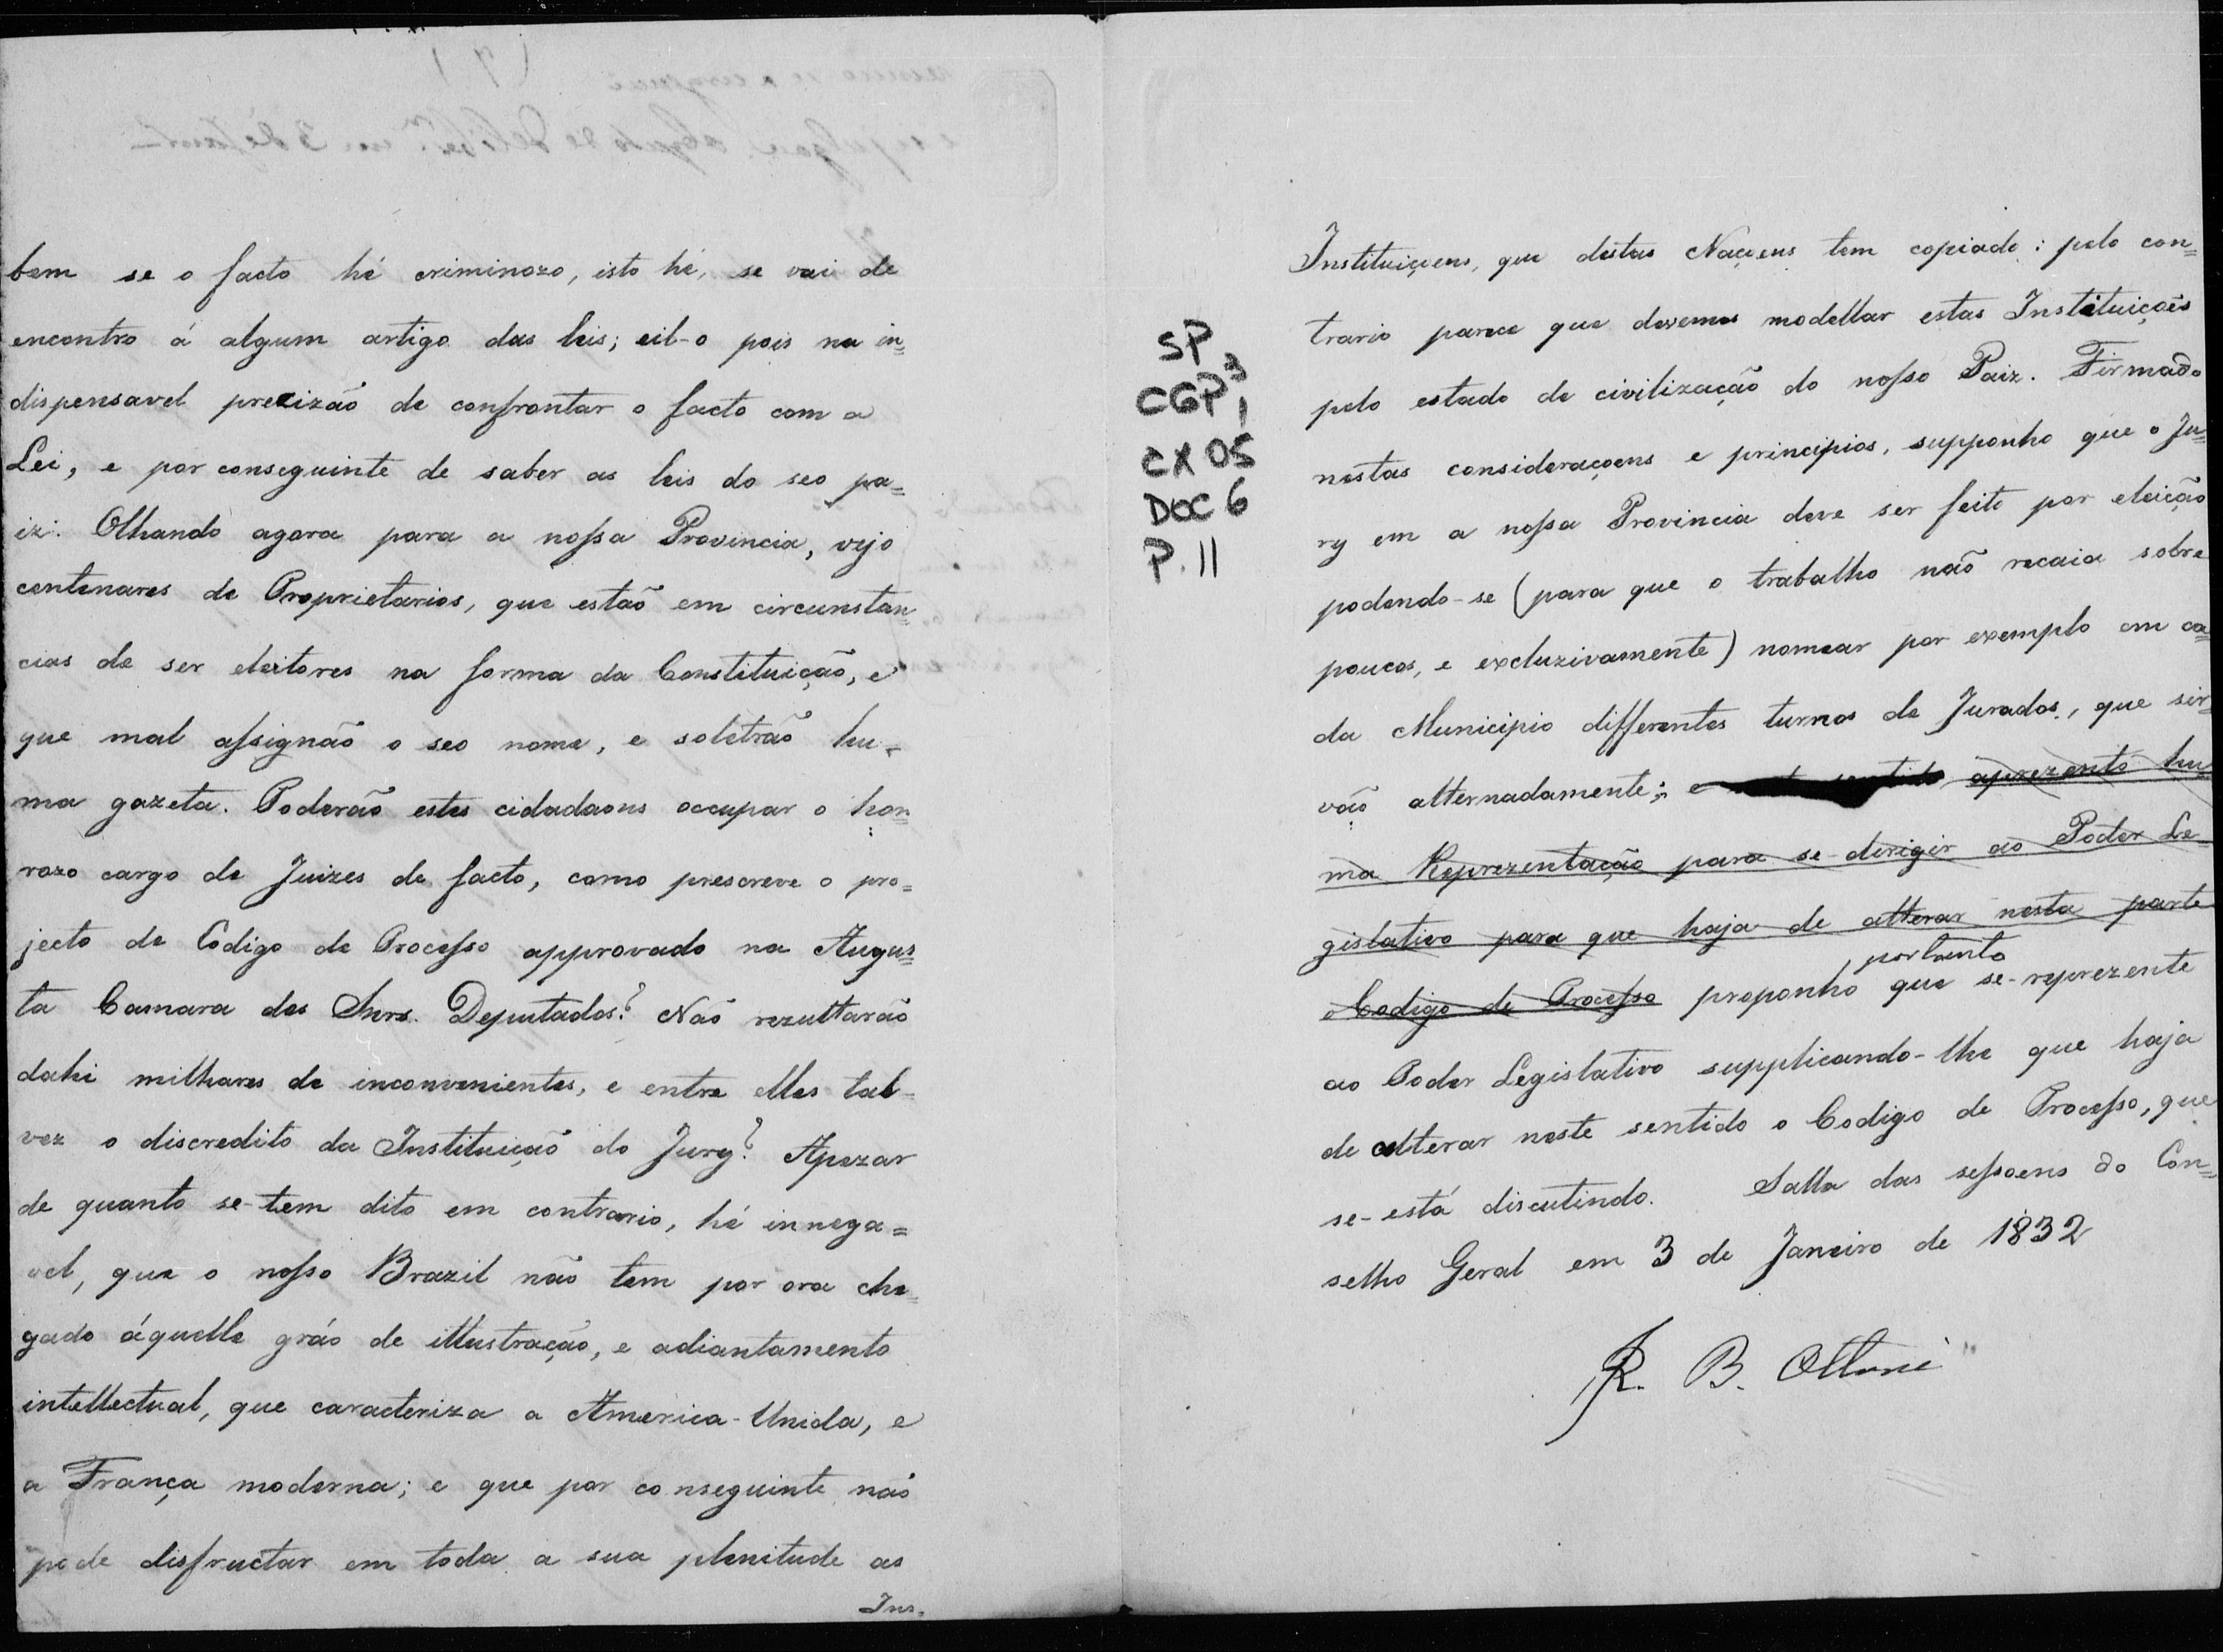 bem se o facto hé criminozo, isto hé, se vai de
encontro á algum artigo das leis; eil-o pois na in=
dispensavel precizão de confrontar o facto com a
Lei, e por conseguinte de saber as leis do seo pa=
iz. Olhando agora para a nossa Provincia, vejo
centenares de Proprietarios, que estão em circunstan=
cias de ser eleitores na forma da Constituição, e
que mal assignão o seo nome, e soletrão hu-
ma gazeta. Poderão estes cidadaons occupar o hon=
rozo cargo de Juizes de facto, como prescreve o pro=
jecto de Codigo de Processo approvado na Augus=
ta Camara dos Snrs. Deputados? Não rezultarão
dahi milhares de inconvenientes, e entre elles tal-
vez o discredito da Instituição do Jury? Apezar
de quanto se-tem dito em contrario, hé innega=
vel, que o nosso Brazil não tem por ora che=
gado áquelle gráo de illustração, e adiantamento
intellectual, que caracteriza a America-Unida, e
a França moderna; e que por conseguinte não
pode disfructar em toda a sua plenitude as
Ins.
SP
CGP³1
CX 05
DOC 6
P. 11
Instituiçoens, que destas Naçoens tem copiado: pelo con=
trario parece que devemos modellar estas Instituiçoẽs
pelo estado de civilização do nosso Paiz. Firmado
nestas consideraçoens e principios, supponho que o Ju=
ry em a nossa Provincia deve ser feito por eleição
podendo-se (para que o trabalho não recaia sobre
poucos, e excluzivamente) nomear por exemplo em ca=
da Municipio differentes turmas de Jurados, que sir=
vão alternadamente; e aprezento hu
ma Reprezentação para se-dirigir ao Poder Le
gislativo para que haja de alterar nesta parte
portanto
o Codigo de Processo proponho que se-reprezente
ao Poder Legislativo supplicando-lhe que haja
de alterar neste sentido o Codigo de Processo, que
se-está discutindo. Salla das sessoens do Con=
selho Geral em 3 de Janeiro de 1832
R. B. Ottoni